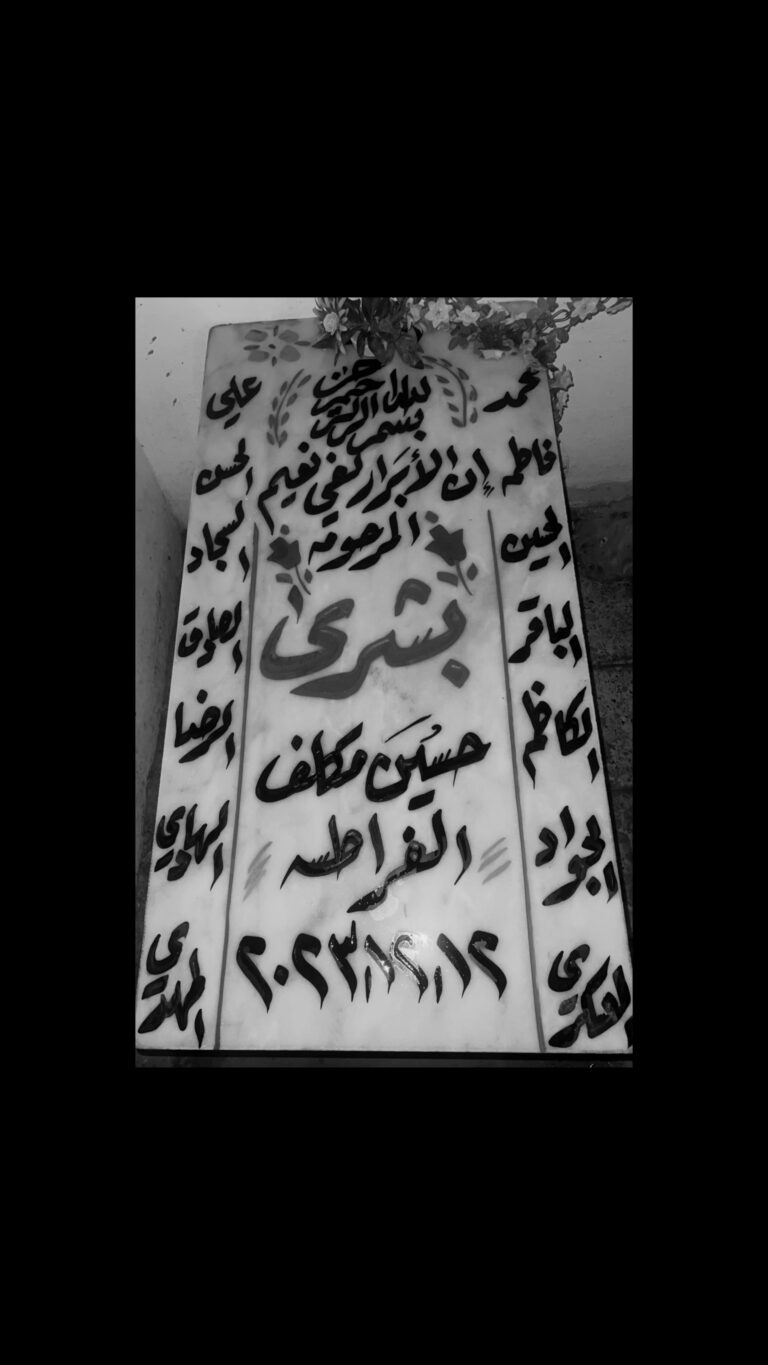 بسم الله الرحمن
إن الأبرار لفي نعيم
المرحومه
بشرى
حسين مكلف
الفراطسه
٢٠٢٣/١٢/١٢
محمد
علي
فاطمه
الحسن
الحسين
السجاد
الباقر
الصادق
الكاظم
الرضا
الجواد
الهادي
العسكري
المهدي